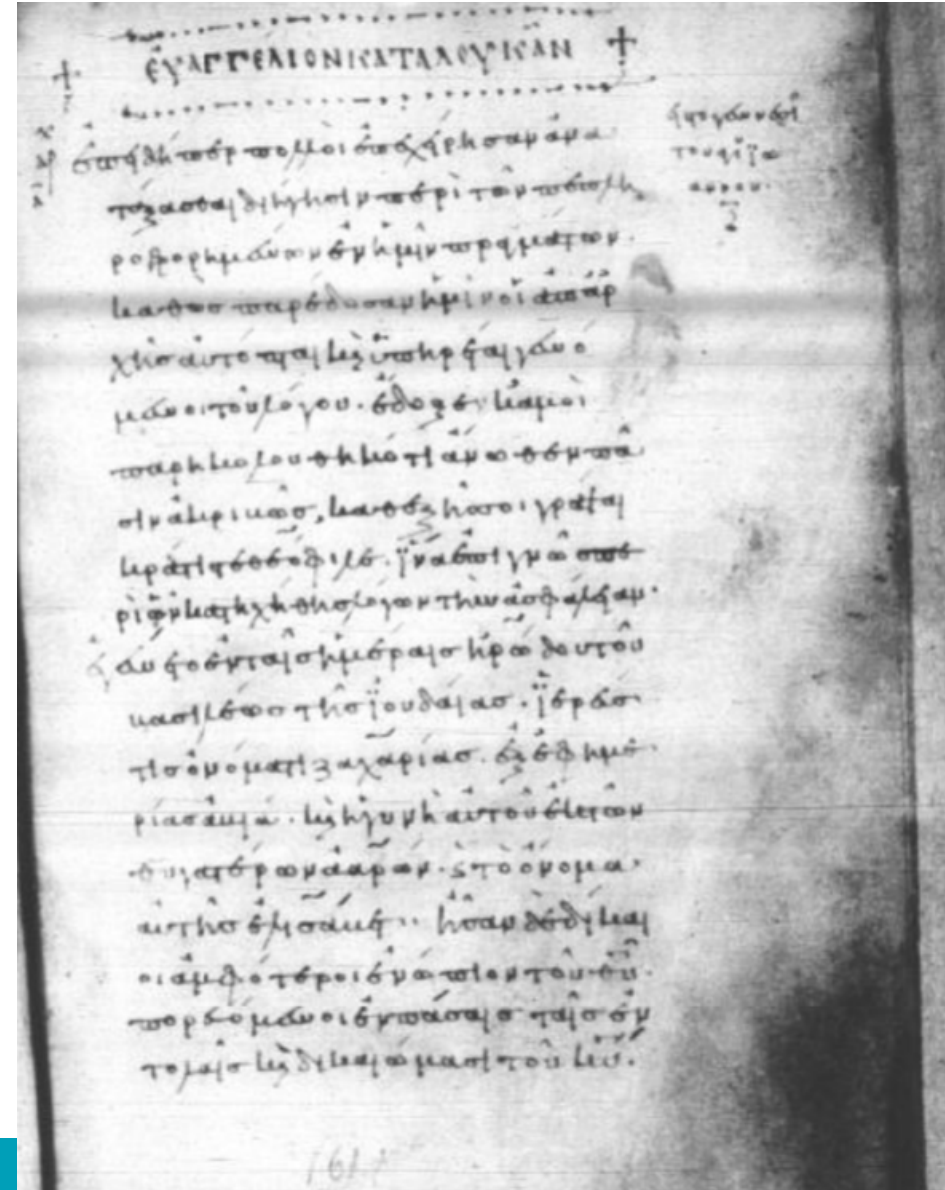 ΕΥΑΓΓΕΛΙΟΝ ΚΑΤΑ ΛΟΥΚΑΝ
ἐπειδήπερ πολλοὶ ἐπεχείρησαν ἀνα
τάξασθαι διήγησιν περὶ τῶν πεπλη
ροφορημένων ἐν ἡμῖν πραγμάτων·
καθὼς παρέδοσαν ἡμῖν οἱ ἀπ' ἀρ
χῆς αὐτόπται καὶ ὑπηρέται γενό
μενοι τοῦ λόγου· ἔδοξε κἀμοὶ
παρηκολουθηκότι ἄνωθεν πᾶ
σιν ἀκριβῶς, καθεξῆς σοι γράψαι
κράτιστε θεόφιλε· ἵνα ἐπιγνῷς πε
ρὶ ὧν κατηχήθης λόγων τὴν ἀσφάλειαν·
ἐγένετο ἐν ταῖς ἡμέραις ἡρώδου τοῦ
βασιλέως τῆς ἰουδαίας· ἱερεύς
τις ὀνόματι ζαχαρίας· ἐξ ἐφημε
ρίας ἀβιά· καὶ ἡ γυνὴ αὐτοῦ ἐκ τῶν
θυγατέρων ἀαρών· καὶ τὸ ὄνομα
αὐτῆς ἐλισάβετ· ἦσαν δὲ δίκαι
οι ἀμφότεροι ἐνώπιον τοῦ θυ·
πορευόμενοι ἐν πάσαις ταῖς ἐν
τολαῖς καὶ δικαιώμασι τοῦ κυ·